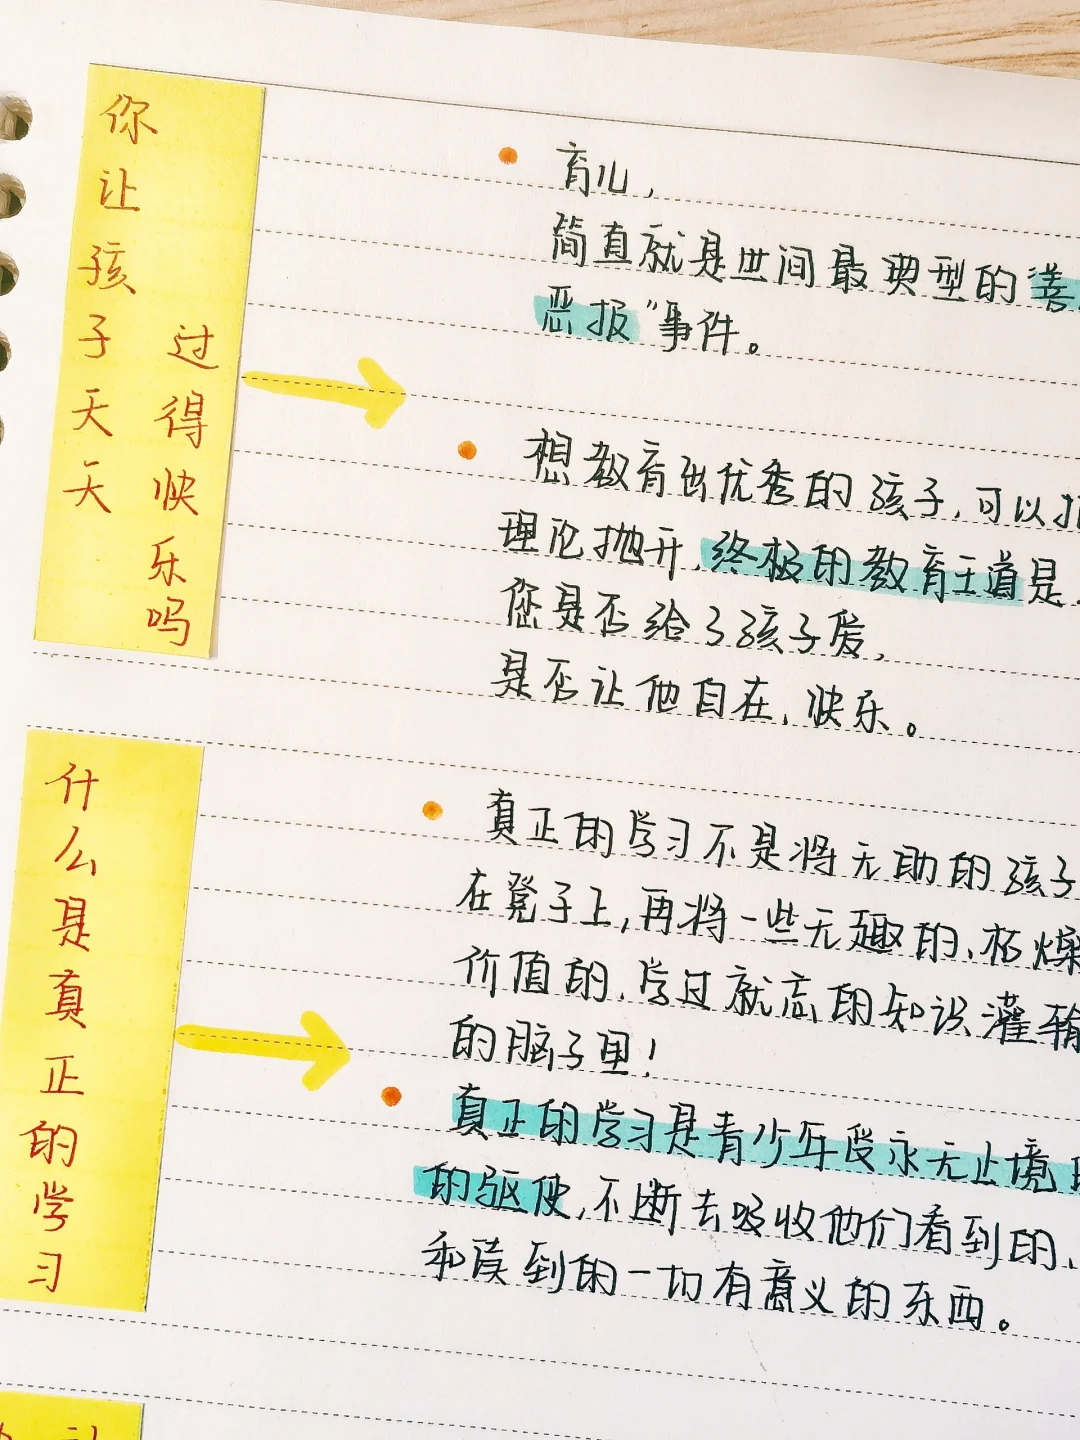 你让孩子天天
过得快乐吗
育儿，
简直就是世间最典型的善
恶报"事件。
想教育出优秀的孩子，可以
理论抛开，终极的教育王道是
您是否给了孩子爱，
是否让他自在、快乐。
什么是真正的学习
真正的学习不是将无助的孩子
在凳子上，再将一些无趣的、枯燥
价值的、学过就忘的知识灌输
的脑子里！
真正的学习是青少年受永无止境
的驱使，不断去吸收他们看到的、
和读到的一切有意义的东西。